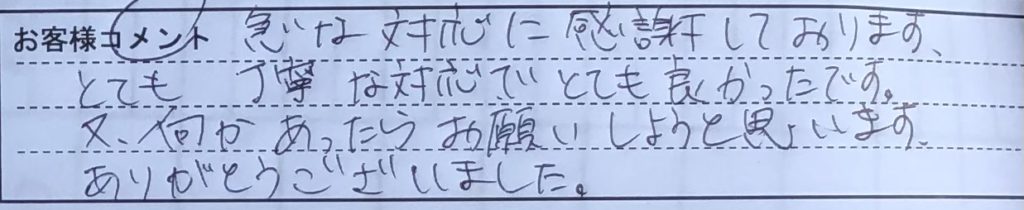 お客様コメント 急な対応に感謝しております、
とても 丁寧な対応でとても良かったです。
又、何かあったらお願いしようと思います、
ありがとうございました。